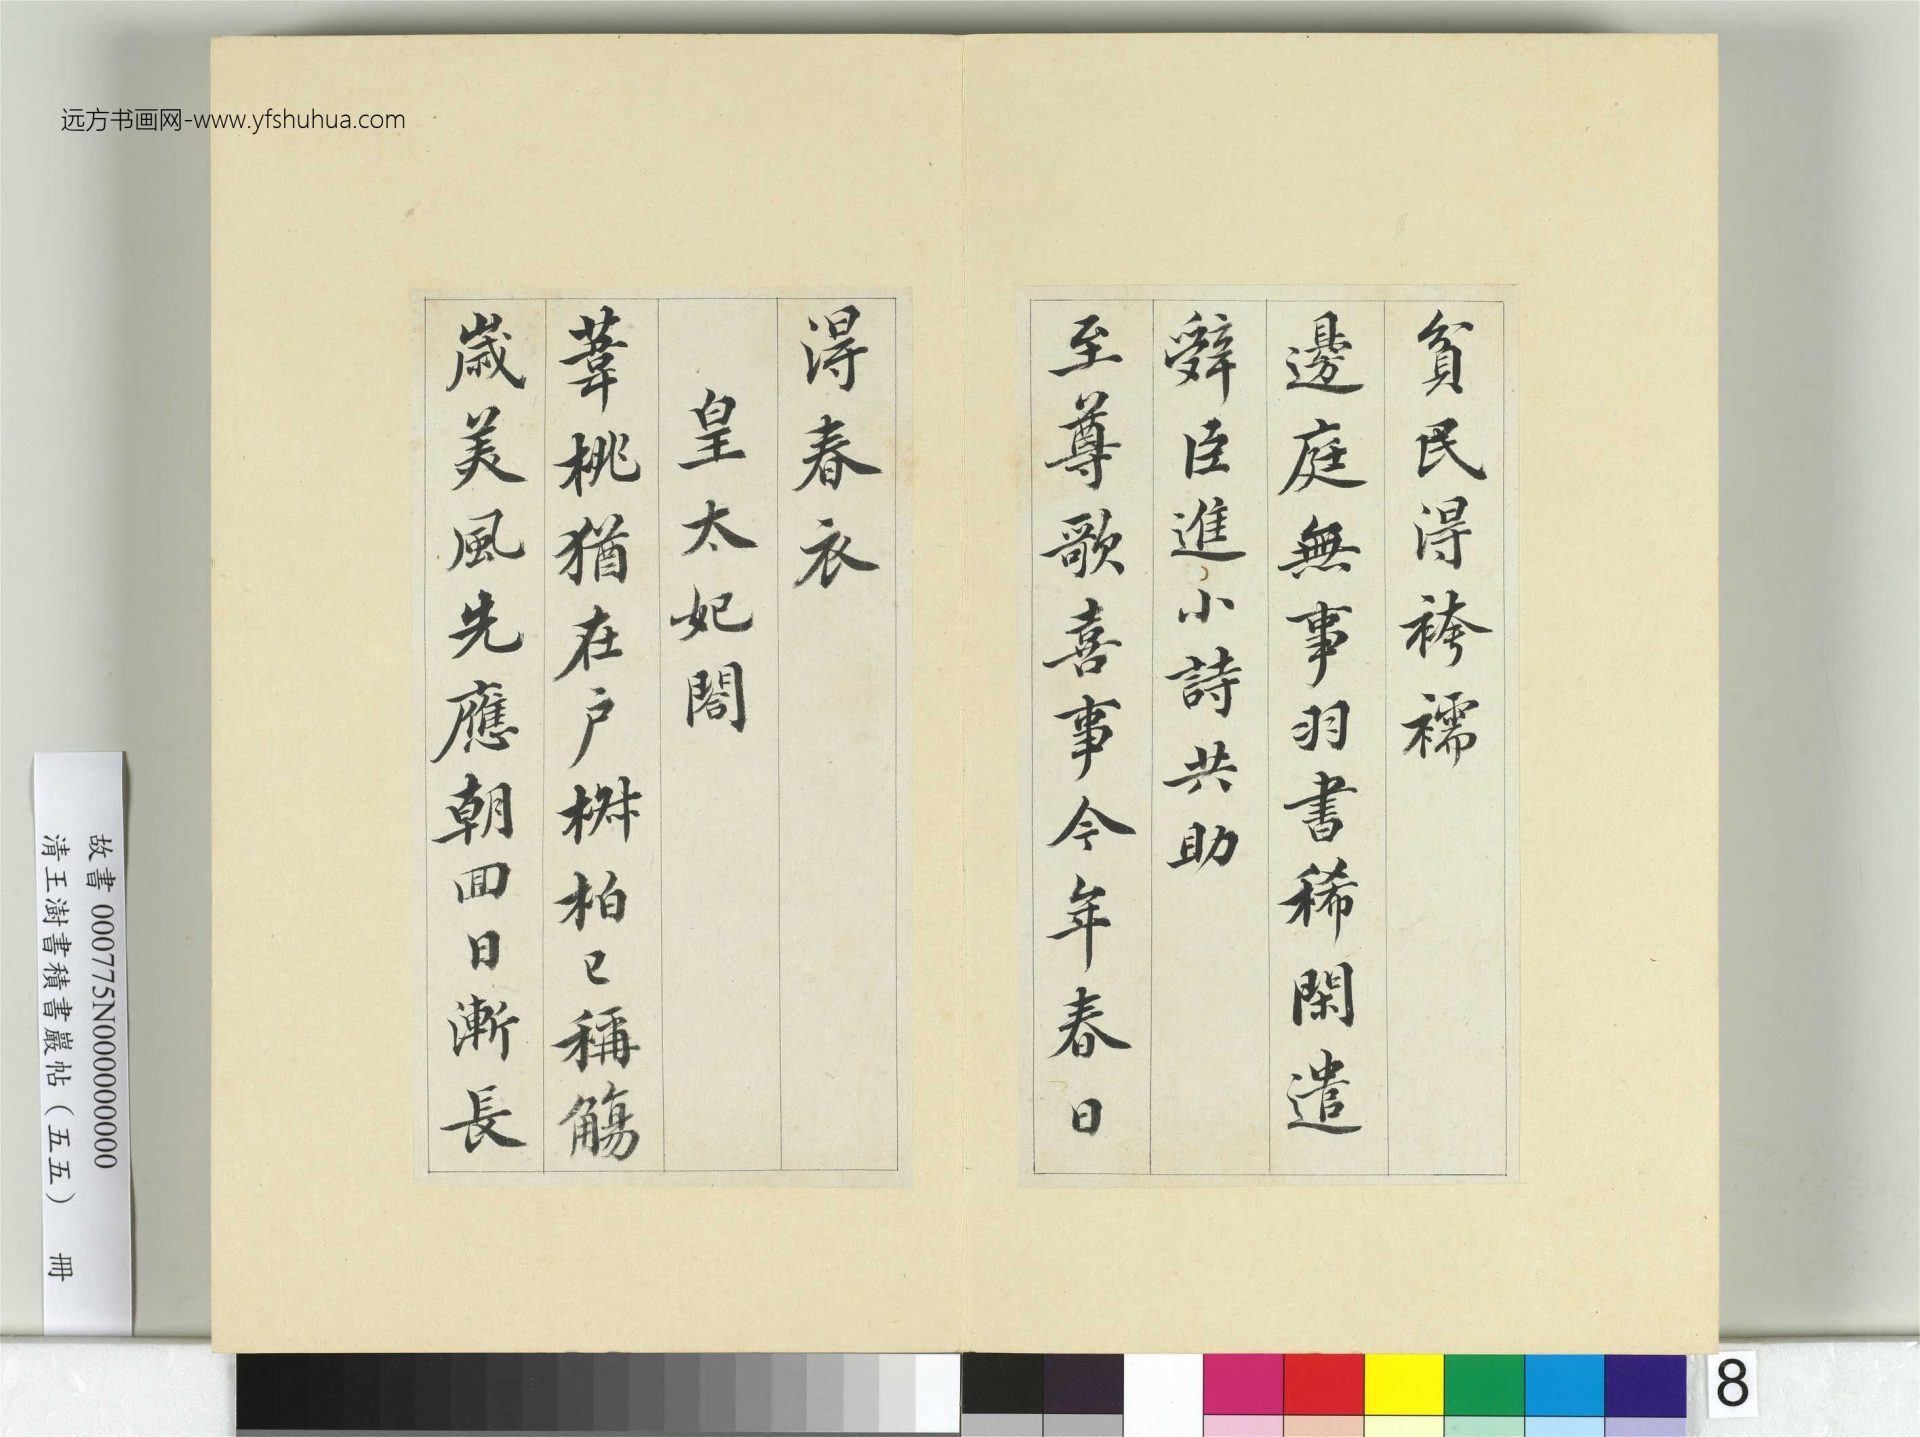 远方书画网-www.yfshuhua.com
貧民得袴襦
邊庭無事羽書稀閑遣
辤臣進小詩共助
至尊歌喜事今年春日
得春衣
皇太妃閤
葦桃猶在戶椒柏已稱觴
歲美風先應朝回日漸長
故書 000775N000000000
清王澍書積書巖帖（五五） 冊
8